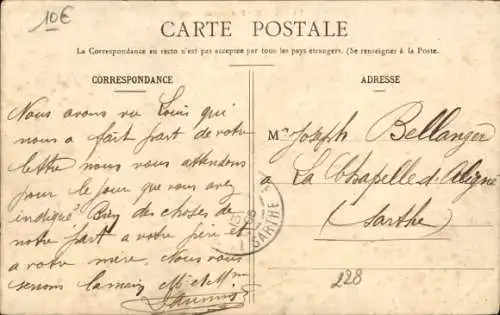 10€
CARTE POSTALE
La Correspondance au recto n'est pas acceptée par tous les pays étrangers. (Se renseigner à la Poste.
CORRESPONDANCE
ADRESSE
Nous avons vu Louis qui
nous a fait part de votre
lettre nous vous attendons
pour le jour que vous avez
indiqué Bien des choses de
notre part a votre père et
a votre mère. Nous vous
serrons la main Mr et Mme
Mr Joseph Bellanger
a La Chapelle d'Aligné
(Sarthe)
SARTHE
228